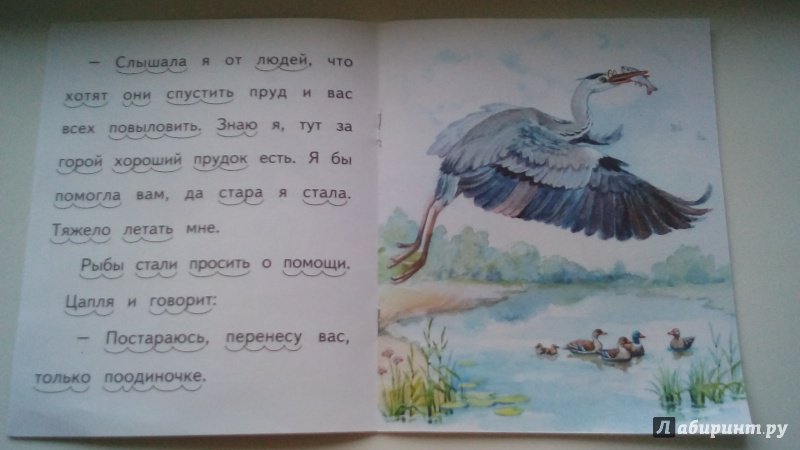 – Слышала я от людей, что
хотят они спустить пруд и вас
всех повыловить. Знаю я, тут за
горой хороший прудок есть. Я бы
помогла вам, да стара я стала.
Тяжело летать мне.
Рыбы стали просить о помощи.
Цапля и говорит:
– Постараюсь, перенесу вас,
только поодиночке.
Лабиринт.ру